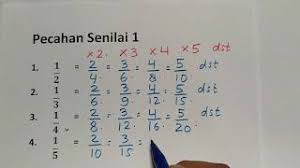 Pecahan Senilai 1
×2 ×3 ×4 ×5 dst
1. 1/2 = 2/4 = 3/6 = 4/8 = 5/10 dst
2. 1/3 = 2/6 = 3/9 = 4/12 = 5/15 dst
3. 1/4 = 2/8 = 3/12 = 4/16 = 5/20 dst
4. 1/5 = 2/10 = 3/15 =